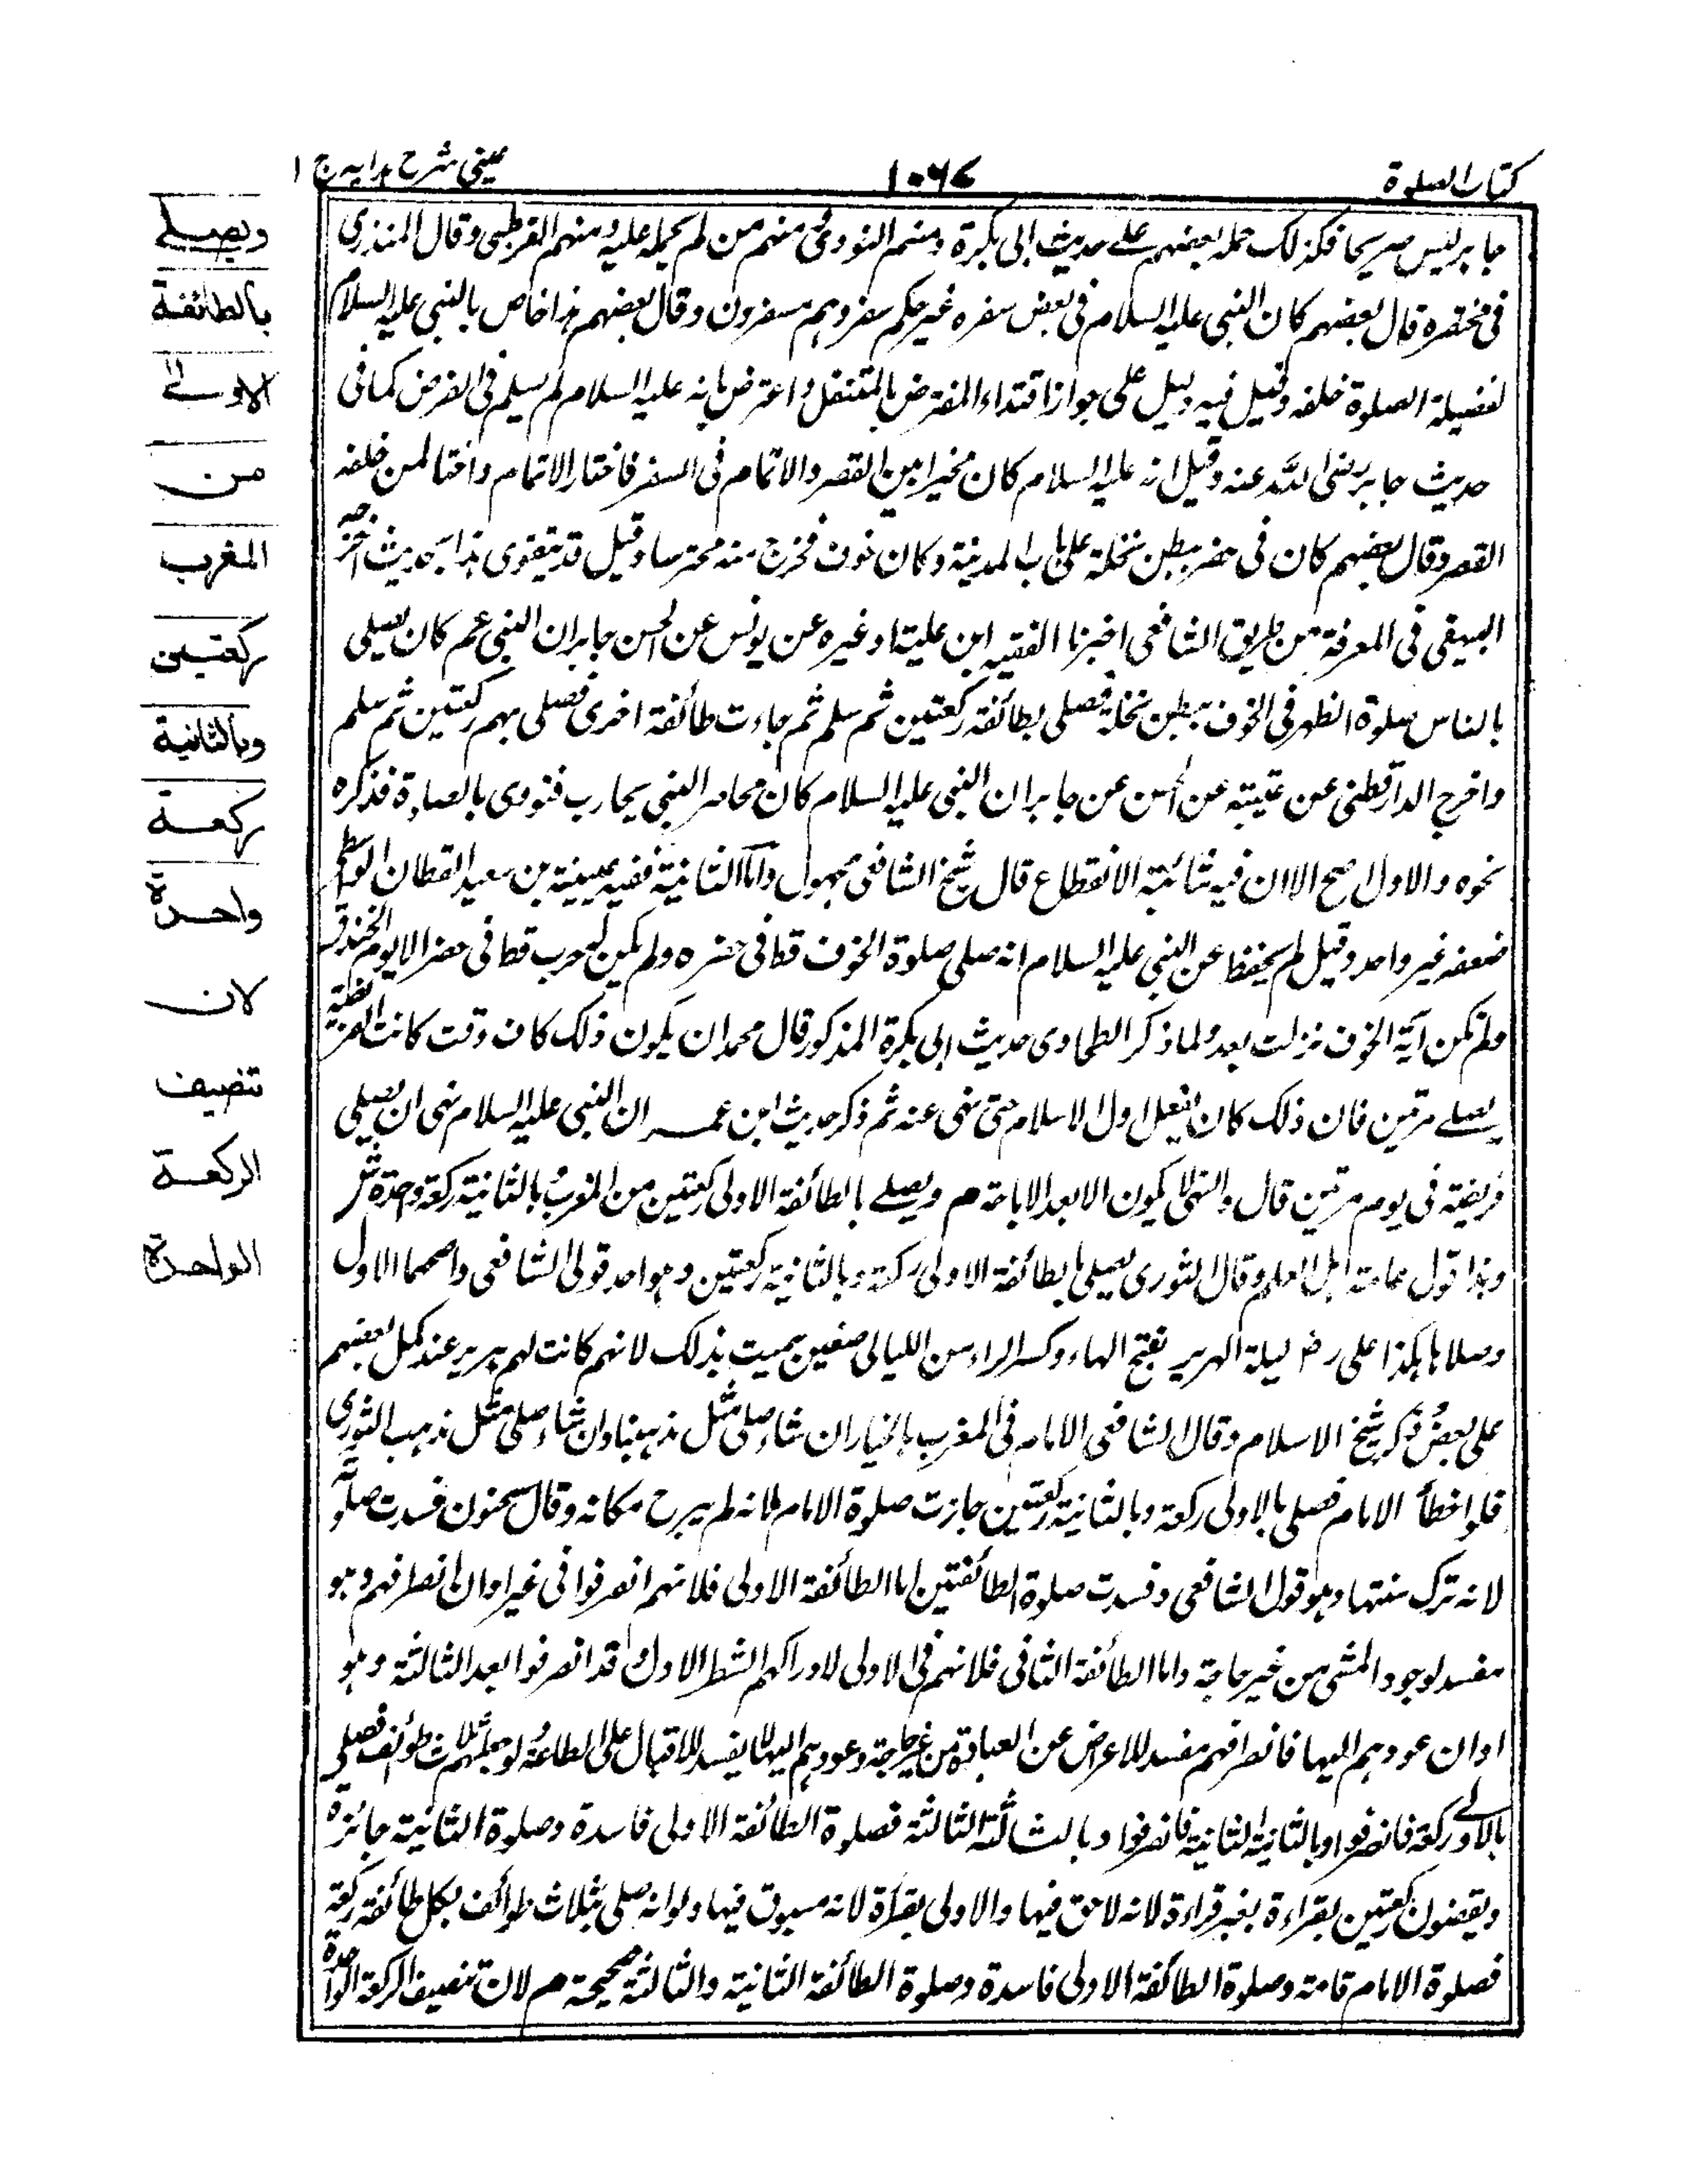 كتاب الصلوة
١٠٦٧
عيني شرح هدايه ج ١
جابر ليس صريحا فكذلك حمله بعضهم على حديث ابى بكرة ومنهم النووى منهم من لم يحمله عليه ومنهم القرطبى وقال المنذرى
فى مختصره قال بعضهم كان النبى عليه السلام فى بعض سفره غير حكم سفر وهم مسفرون وقال بعضهم هذا خاص بالنبى عليه السلام
لفضيلة الصلوة خلفه وقيل فيه دليل على جواز اقتداء المفترض بالمتنفل واعترض بانه عليه السلام لم يسلم فى الفرض كما فى
حديث جابر رضى الله عنه وقيل انه عليه السلام كان مخيرا بين القصر والاتمام فى السفر فاختار الاتمام واختا لمن خلفه
القصر وقال بعضهم كان فى حضر ببطن نخلة على باب المدينة وكان خوف فخرج منه محترسا وقيل قد يتقوى هذا بحديث اخرجه
البيهقى فى المعرفة من طريق الشافعى اخبرنا الفقيه ابن علية او غيره عن يونس عن الحسن جابر ان النبى عم كان يصلى
بالناس صلوة الظهر فى الخوف ببطن نخلة فصلى بطائفة ركعتين ثم سلم ثم جاءت طائفة اخرى فصلى بهم ركعتين ثم سلم
واخرج الدارقطنى عن عنبسة عن الحسن عن جابر ان النبى عليه السلام كان محاصر النبى يحارب فنودى بالصلوة فذكره
نحوه والاول اصح الا ان فيه شائبة الانقطاع قال شيخ الشافعى مجهول واما الثانية ففيه عيينة بن سعيد القطان الواسطى
ضعفه غير واحد وقيل لم يحفظ عن النبى عليه السلام انه صلى صلوة الخوف قط فى حضره ولم يكن له حرب قط فى حضر الا يوم الخندق
ولم تكن آية الخوف نزلت بعد ولما ذكر الطحاوى حديث ابى بكرة المذكور قال محمد ان يكون ذلك كان وقت كانت الفريضة
يصلے مرتين فان ذلك كان يفعل اول الاسلام حتى نهى عنه ثم ذكر حديث ابن عمر ان النبى عليه السلام نهى ان يصلى
فريضة فى يوم مرتين قال والنهى لا يكون الا بعد الاباحة م ويصلے بالطائفة الاولى ركعتين من المغرب بالثانية ركعة واحدة ش
وهذا قول عامة اهل العلم وقال الثورى يصلى بالطائفة الاولى ركعة وبالثانية ركعتين وهو احد قولى الشافعى واصحهما الاول
وصلاها هكذا على رض ليلة الهرير بفتح الهاء وكسر الراء من الليالى صفين سميت بذلك لانهم كانت لهم هرير عند كل بعضهم
على بعض ذكره شيخ الاسلام وقال الشافعى الامام فى المغرب بالخيار ان شاء صلى مثل مذهبنا وان شاء صلى مثل مذهب الثورى
فلو اخطأ الامام فصلى بالاولى ركعة وبالثانية ركعتين جازت صلوة الامام لانه لم يبرح مكانه وقال سحنون فسدت صلوته
لانه ترك سنتها وهو قول الشافعى وفسدت صلوة الطائفتين اما الطائفة الاولى فلانهم انصرفوا فى غير اوان انصرافهم وهو
مفسد لوجود المشى من غير حاجة واما الطائفة الثانى فلانهم فى الاولى لادراكهم الشطر الاول وقد انصرفوا بعد الثالثة وهو
اوان عودهم اليها فانصرافهم مفسد للاعراض عن العبادة من غير حاجة وعودهم اليها لا يفسد للاقبال على الطاعة لو جعلهم ثلاث طوائف فصلى
بالاولے ركعة فانصرفوا وبالثانية الثانية فانصرفوا وبالثالثة الثالثة فصلوة الطائفة الاولى فاسدة وصلوة الثانية جائزة
ويقضون ركعتين بقراءة بغير قراءة لانه لاحق فيها والاولى بقراءة لانه مسبوق فيها ولو انه صلى بثلاث طوائف بكل طائفة ركعة
فصلوة الامام قامة وصلوة الطائفة الاولى فاسدة وصلوة الطائفة الثانية والثالثة صحيحة م لان تنصيف الركعة الواحدة
ويصلے
بالطائفة
الاولے
من
المغرب
ركعتين
وبالثانية
ركعة
واحدة
لان
تنصيف
الركعة
الواحدة